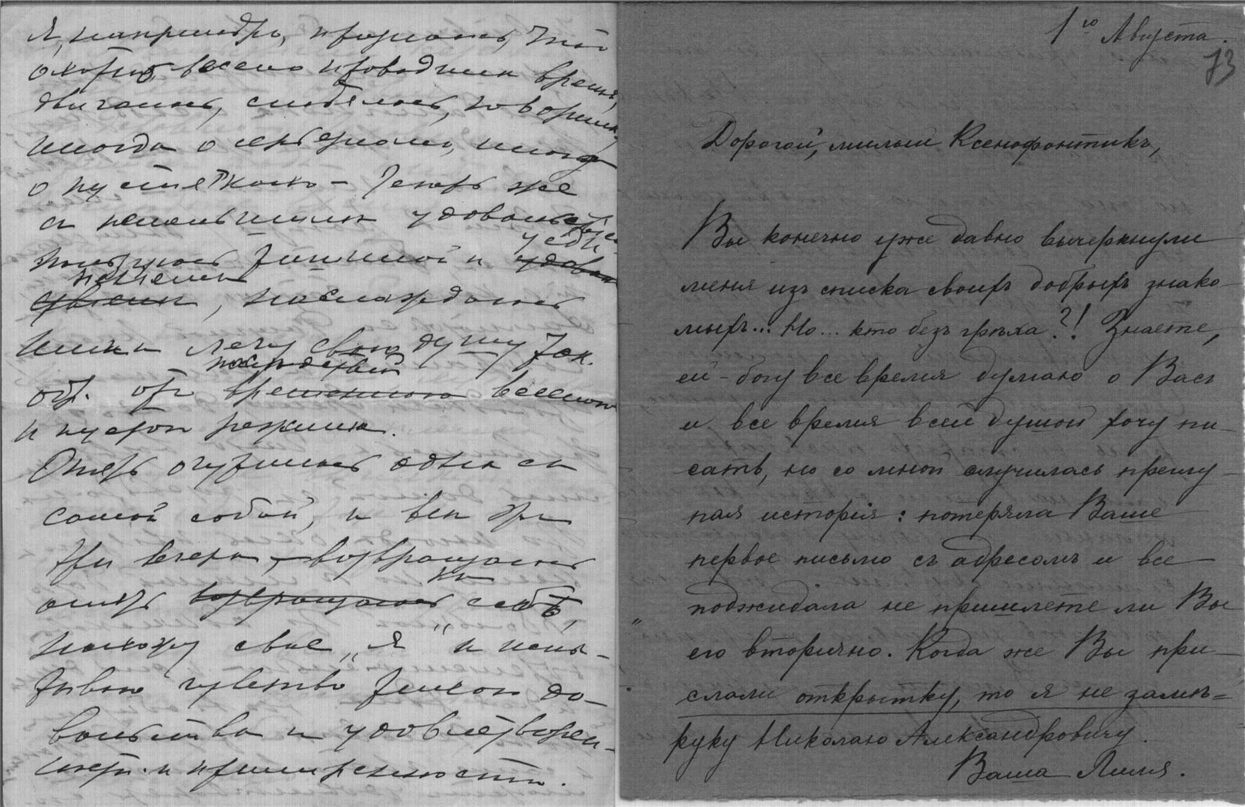 Я, напримеръ, прозналъ, что
охотно весело проводили время,
двигались, смеялись, говорили,
иногда о серьезномъ, иногда
о пустякахъ — Теперь же
съ неменьшимъ удовольствіем
пользуюсь тишиной и уеди-
неніемъ, наслаждаюсь
ими и лечу свою душу
обр. отъ веселой
и пустой жизни.
Опять очутилась одна съ
самой собой, и вотъ уже
три вечера — возвращаюсь
опять къ себѣ,
нахожу свое „я" и испы-
тываю чувство тихого до-
вольства и удовлетворен-
ности и примиренности.
1го Августа.
73
Дорогой, милый Ксенофонтикъ,
Вы конечно уже давно вычеркнули
меня изъ списка своихъ добрыхъ знако-
мыхъ... Но... кто безъ грѣха?! Знаете,
ей-богу все время думаю о Васъ
и все время всей душой хочу пи-
сать, но со мной случилась преглу-
пая исторія: потеряла Ваше
первое письмо съ адресомъ и все
поджидала не пришлете ли Вы
его вторично. Когда же Вы при-
слали открытку, то я не
руку Николаю Александровичу.
Ваша Лиля.